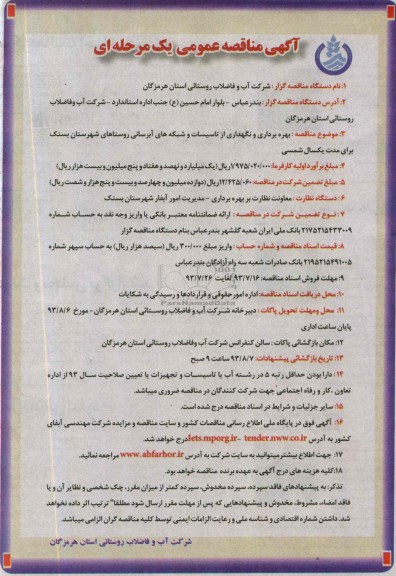 آگهی مناقصه عمومی یک مرحله ای
۱: نام دستگاه مناقصه گزار: شرکت آب و فاضلاب روستائی استان هرمزگان
۲: آدرس دستگاه مناقصه گزار: بندرعباس -بلوار امام حسین (ع) جنب اداره استاندارد -شرکت آب وفاضلاب
روستائی استان هرمزگان
۳: موضوع مناقصه: بهره برداری و نگهداری از تاسیسات و شبکه های آبرسانی روستاهای شهرستان بستک
برای مدت یکسال شمسی
۴: مبلغ برآورد اولیه کارفرما: ۱/۹۷۵/۰۲۰/۰۰۰ ریال (یک میلیارد و نهصد و هفتاد و پنج میلیون و بیست هزار ریال)
۵: مبلغ تضمین شرکت در مناقصه: ۱۲/۴۲۵/۰۶۰ ریال (دوازده میلیون و چهارصد و بیست و پنج هزار و شصت ریال)
۶: دستگاه نظارت: معاونت نظارت بر بهره برداری - مدیریت امور آبفار شهرستان بستک
۷: نوع تضمین شرکت در مناقصه: ارائه ضمانتنامه معتبر بانکی یا واریز وجه نقد به حساب شماره
۲۱۷۵۲۱۵۴۳۳۰۰۹ بانک ملی ایران شعبه گلشهر بندرعباس بنام دستگاه مناقصه گزار
۸: قیمت اسناد مناقصه و شماره حساب: واریز مبلغ ۳۰۰/۰۰۰ ریال (سیصد هزار ریال) به حساب سپهر شماره
۲۱۹۵۲۱۵۴۹۱۰۰۵ بانک صادرات شعبه سه راه آزادگان بندرعباس
۹: مهلت فروش اسناد مناقصه: ۹۳/۷/۱۶ لغایت ۹۳/۷/۲۶
۱۰: محل دریافت اسناد مناقصه: اداره امور حقوقی و قراردادها و رسیدگی به شکایات
۱۱: محل ومهلت تحویل پاکات: دبیرخانه شرکت آب و فاضلاب روستائی استان هرمزگان- مورخ ۹۳/۸/۶
پایان ساعت اداری
۱۲: مکان بازگشائی پاکات: سالن کنفرانس شرکت آب وفاضلاب روستائی استان هرمزگان
۱۳: تاریخ بازگشائی پیشنهادات: ۹۳/۸/۷ ساعت ۹ صبح
۱۴: دارا بودن حداقل رتبه ۵ در رشته آب یا تاسیسات و تجهیزات یا تعیین صلاحیت سال ۹۳ از اداره
تعاون ،کار و رفاه اجتماعی جهت شرکت کنندگان در مناقصه ضروری میباشد.
۱۵: سایر جزئیات و شرایط در اسناد مناقصه درج شده است.
۱۶: آگهی فوق در پایگاه ملی اطلاع رسانی مناقصات کشور و سایت مناقصه و مزایده شرکت مهندسی آبفای
کشور به آدرس iets.mporg.ir- tender.nww.co.ir درج خواهد شد.
۱۷: جهت اطلاع بیشتر میتوانید به سایت شرکت به آدرس www.abfarhor.ir مراجعه نمائید.
۱۸: کلیه هزینه های درج آگهی به عهده برنده مناقصه خواهد بود.
تذکر: به پیشنهادهای فاقد سپرده، سپرده مخدوش، سپرده کمتر از میزان مقرر، چک شخصی و نظایر آن و یا
فاقد امضاء، مشروط، مخدوش و پیشنهادهایی که پس از مهلت مقرر ارسال شود مطلقا" ترتیب اثر داده نخواهد
شد. داشتن شماره اقتصادی و شناسه ملی و رعایت الزامات ایمنی توسط کلیه مناقصه گران الزامی میباشد.
شرکت آب و فاضلاب روستائی استان هرمزگان